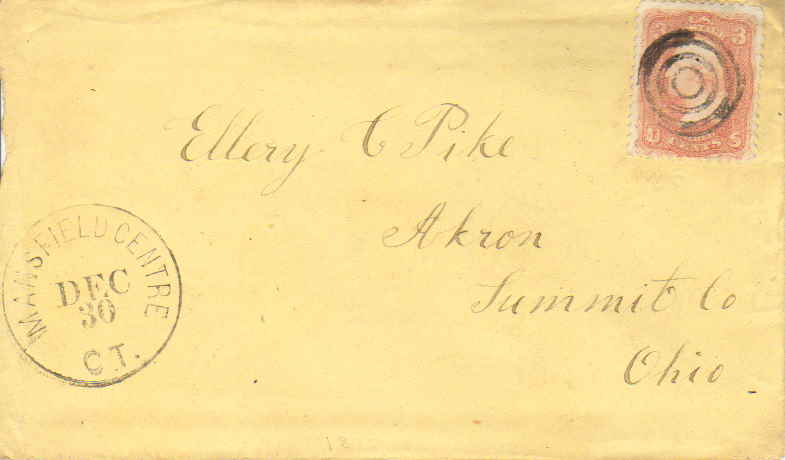 3
U S
Ellery C Pike
Akron
Summit Co
Ohio
MANSFIELD CENTRE
DEC
30
C.T.
18